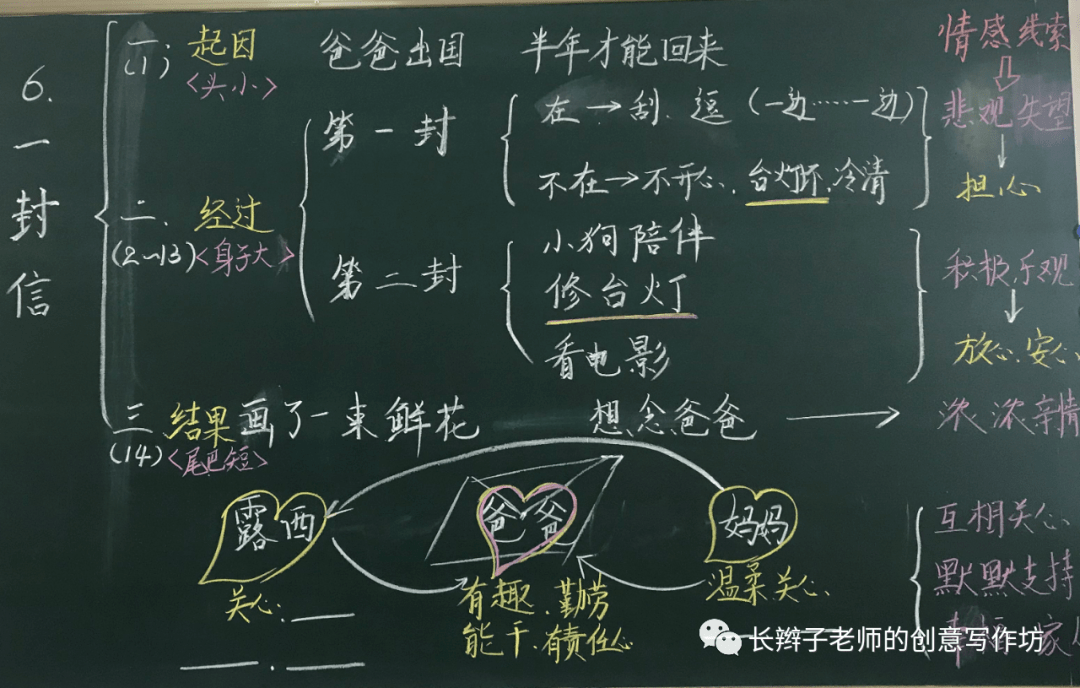 6.一封信
一、起因 爸爸出国 半年才能回来 情感线索
(1) <头小>
第一封 在→刮、逗 (一边……一边) 悲观失望
不在→不开心、台灯坏、冷清 担心
二、经过
(2~13) <身子大>
第二封 小狗陪伴 积极乐观
修台灯
看电影 放心、安心
三 结果 画了一束鲜花 想念爸爸 → 浓浓亲情
(14) <尾巴短>
露西 爸爸 妈妈
关心、 有趣、勤劳 温柔关心、
能干、有责任心
互相关心
默默支持
长辫子老师的创意写作坊